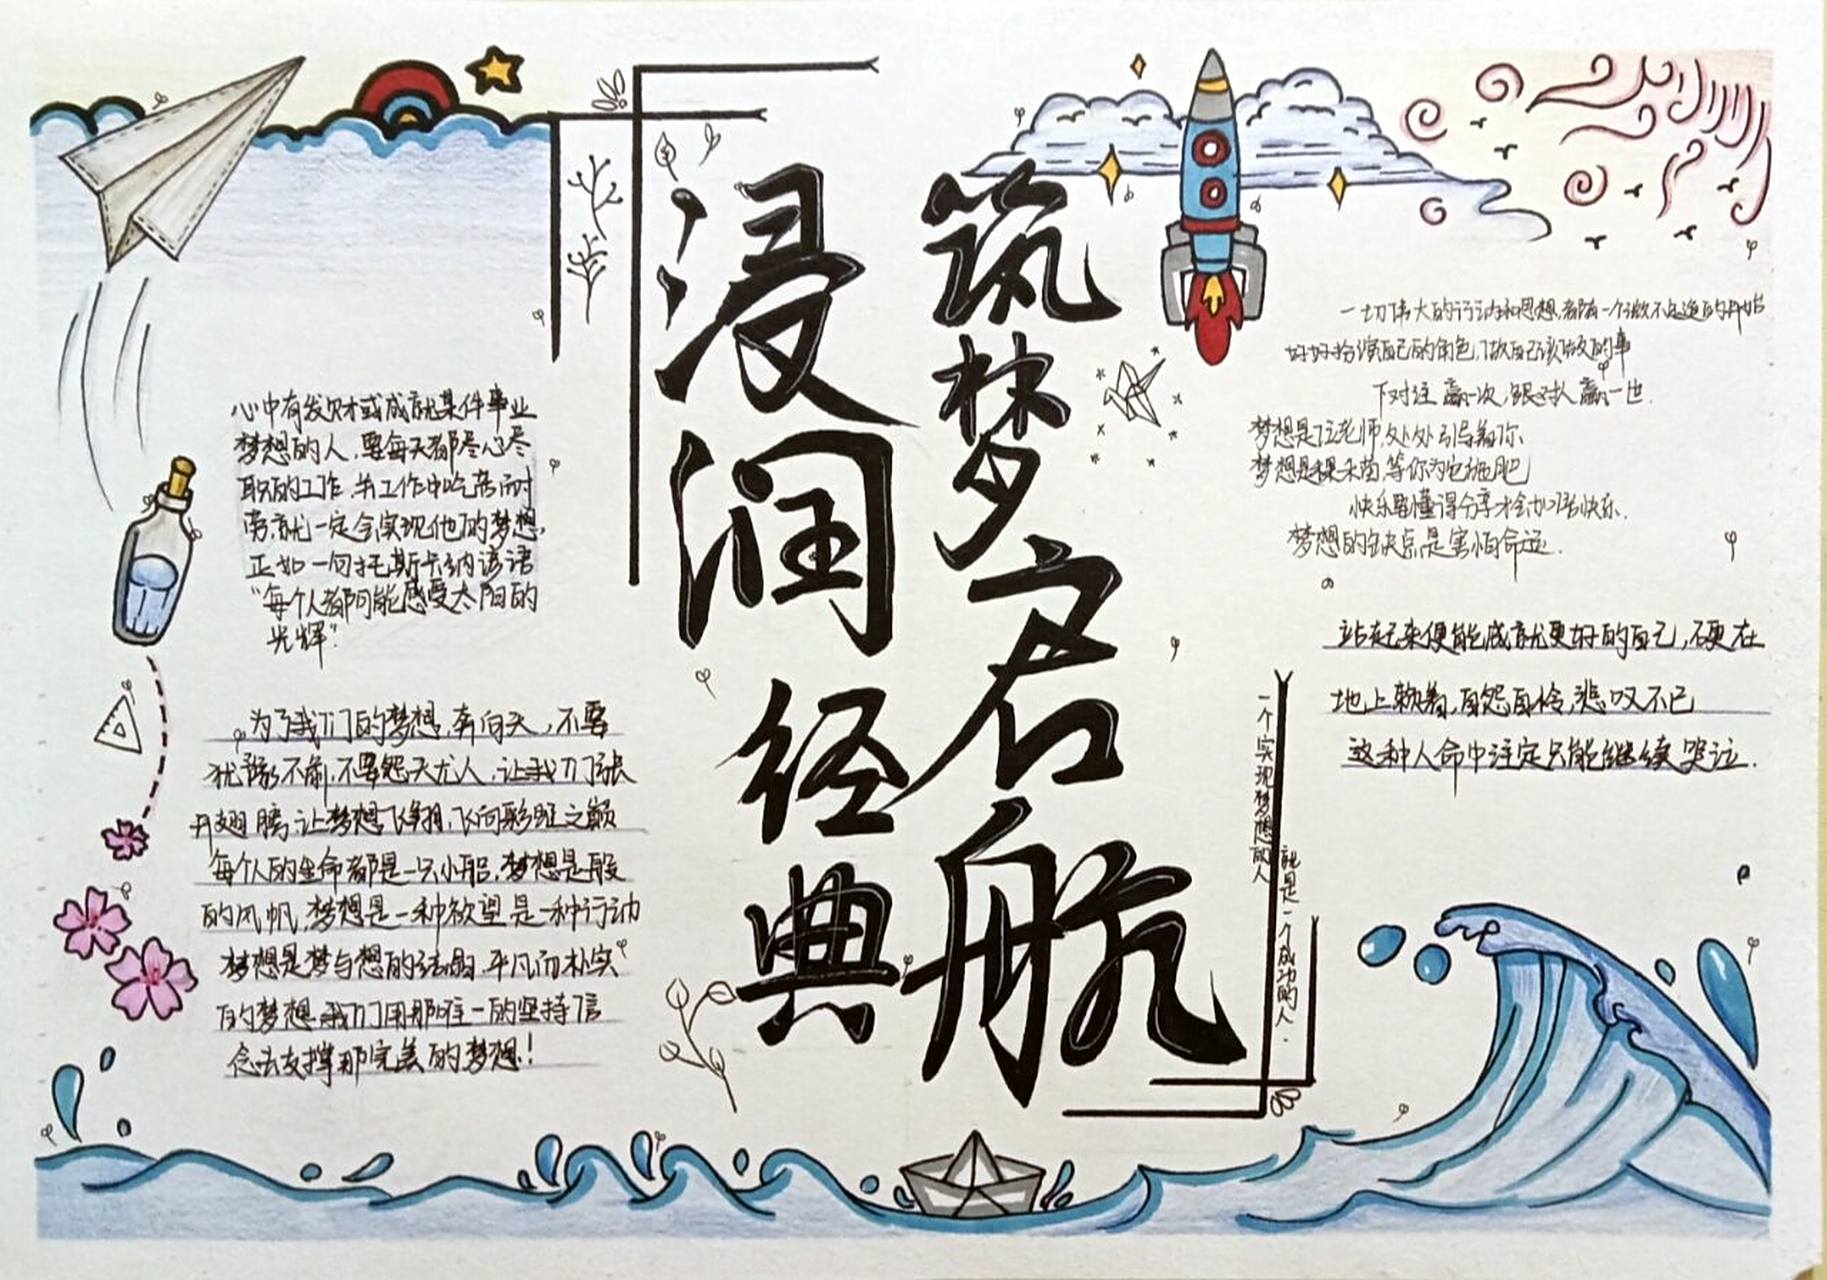 浸润经典
筑梦启航
心中有发财或成就某件事业
梦想的人,要每天都尽心尽
职的工作,并工作中吃苦而耐
劳,就一定会实现他的梦想,
正如一句托斯卡纳谚语
“每个人都可能感受太阳的
光辉”
为了我们的梦想,奔向天,不要
犹豫不前,不要怨天尤人,让我们张
开翅膀,让梦想飞翔,飞向彩虹之巅
每个人的生命都是一只小船,梦想是船
的风帆,梦想是一种欲望,是一种行动
梦想是梦与想的结晶,平凡而朴实
的梦想,我们用那唯一的坚持信
念去支撑那完美的梦想!
一切伟大的行动和思想,都有一个微不足道的开始
好好扮演自己的角色,做自己该做的事
下对注,赢一次,跟对人,赢一世.
梦想是位老师,处处引导着你
梦想是棵禾苗,等你为它施肥
快乐要懂得分享才会加倍快乐.
梦想的缺点是害怕命运.
站起来便能成就更好的自己,硬在
地上躺着,自怨自怜,悲叹不已
这种人命中注定只能继续哭泣.
一个实现梦想的人
就是一个成功的人.